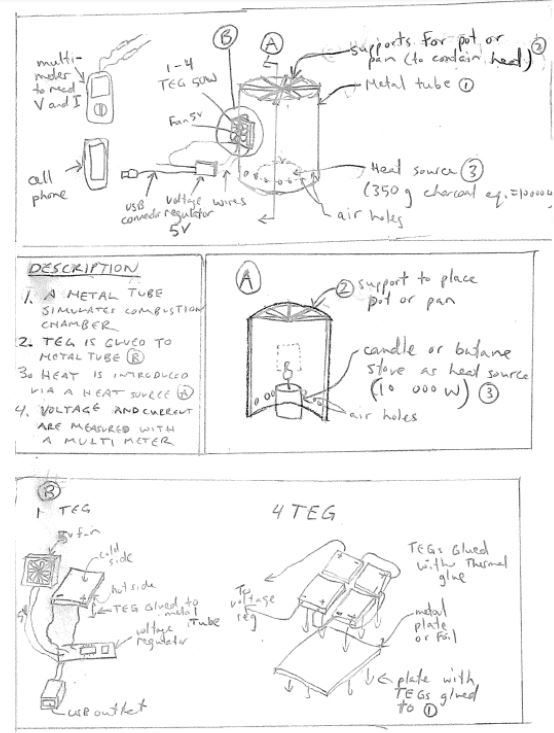 multi-
meter
to read
V and I
1-4
TEG 50W
Fan 5V
B
A
supports for pot or
pan (to contain heat) 2
Metal tube 1
Heat source 3
(350 g charcoal eq. = 10000W
air holes
cell
phone
USB
connector
voltage
regulator
5V
wires
DESCRIPTION
1. A METAL TUBE
SIMULATES COMBUSTION
CHAMBER
2. TEG IS GLUED TO
METAL TUBE B
3. HEAT IS INTRODUCED
VIA A HEAT SOURCE A
4. VOLTAGE AND CURRENT
ARE MEASURED WITH
A MULTI METER
A
2 support to place
pot or pan
candle or butane
stove as heat source
(10 000 W) 3
air holes
B
1 TEG
5v fan
cold
side
hot side
TEG Glued to
metal
tube
voltage
regulator
USB outlet
4 TEG
TEGs Glued
with Thermal
glue
To
voltage
reg
metal
plate
or foil
plate with
TEGs glued
to 1